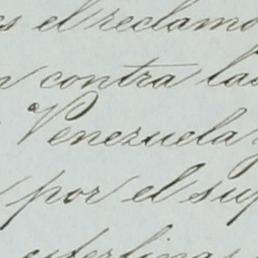 es el reclamo
contra las
Venezuela y
por el sup
esterlinas